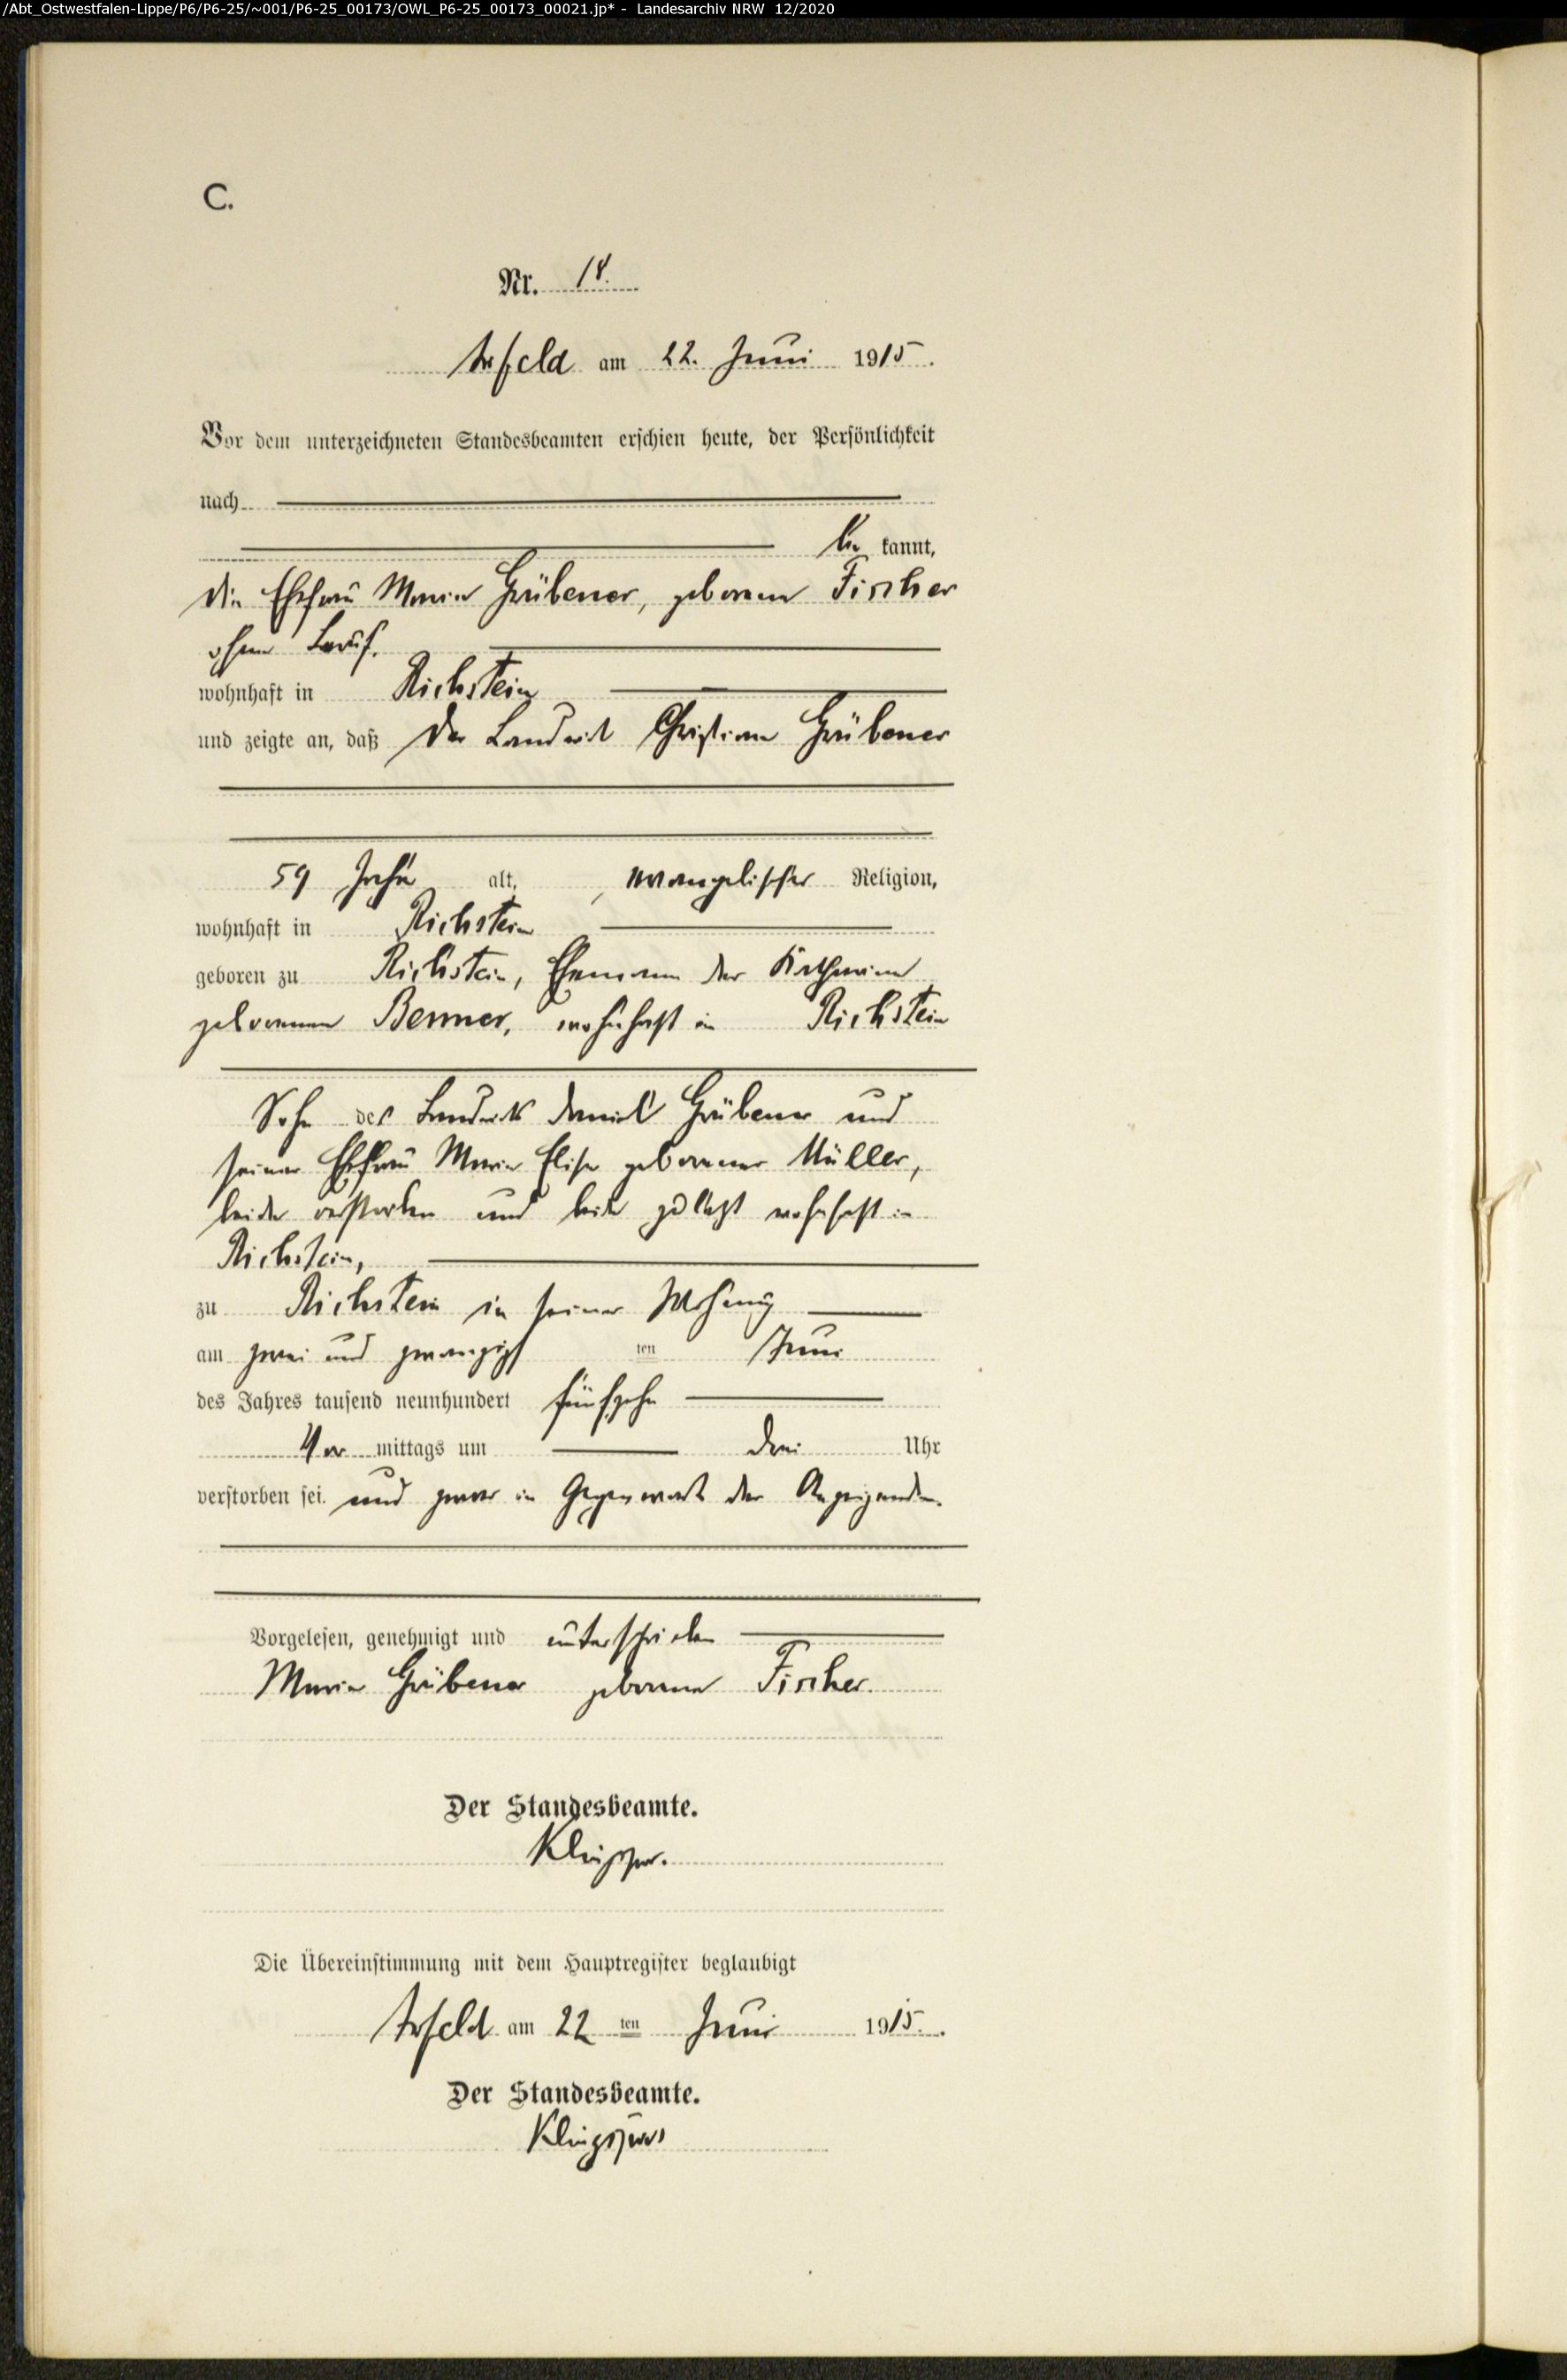 /Abt_Ostwestfalen-Lippe/P6/P6-25/~001/P6-25_00173/OWL_P6-25_00173_00021.jp* - Landesarchiv NRW 12/2020
C.
Nr. 18.
Arfeld am 22. Juni 1915.
Vor dem unterzeichneten Standesbeamten erschien heute, der Persönlichkeit
nach
be kannt,
die Ehefrau Maria Grübener, geborene Fischer
ohne Beruf.
wohnhaft in Richstein
und zeigte an, daß der Landwirt Christian Grübener
59 Jahre alt, evangelischer Religion,
wohnhaft in Richstein
geboren zu Richstein, Ehemann der Katharina
geborenen Benner, wohnhaft in Richstein
Sohn des Landwirts Daniel Grübener und
seiner Ehefrau Maria Elise geborener Müller,
beide verstorben und beide zuletzt wohnhaft in
Richstein,
zu Richstein in seiner Wohnung
am zwei und zwanzigsten Juni
des Jahres tausend neunhundert fünfzehn
Vor mittags um drei Uhr
verstorben sei. und zwar in Gegenwart der Anzeigenden.
Vorgelesen, genehmigt und unterschrieben
Maria Grübener geborene Fischer.
Der Standesbeamte.
Die Übereinstimmung mit dem Hauptregister beglaubigt
Arfeld am 22 ten Juni 1915.
Der Standesbeamte.